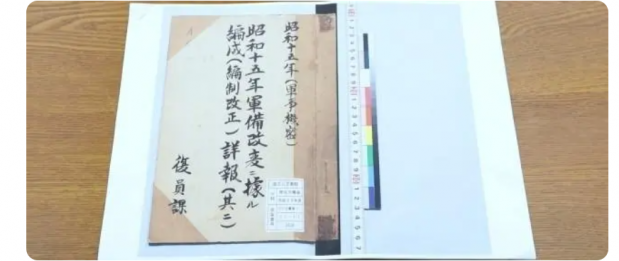 昭和十五年（軍事機密）
昭和十五年軍備改変ニ據ル
編成（編制改正）詳報（其二）
復員課